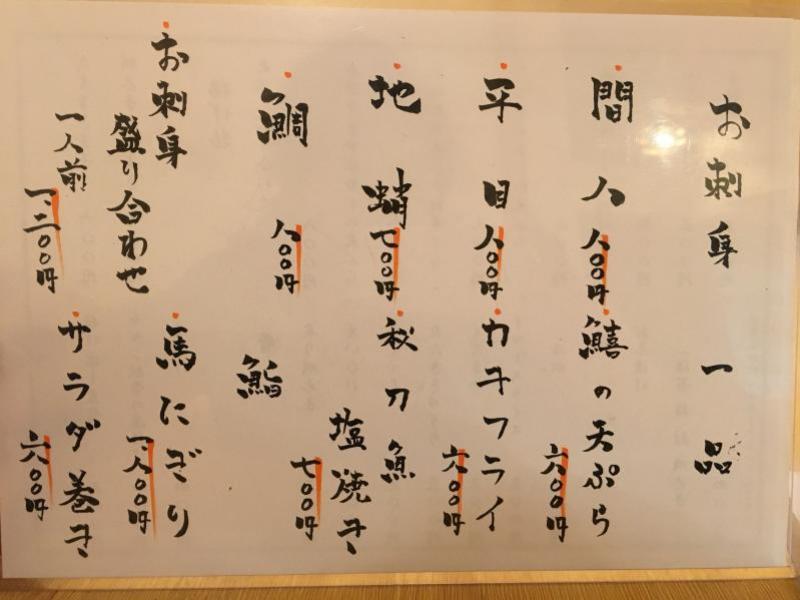 お刺身
間八 八〇〇円
平目 八〇〇円
地蛸 七〇〇円
鯛 八〇〇円
お刺身
盛り合わせ
一人前
一、二〇〇円
一品
鱚の天ぷら
六〇〇円
カキフライ
六〇〇円
秋刀魚
塩焼き
七〇〇円
鮨
馬にぎり
一、八〇〇円
サラダ巻き
六〇〇円